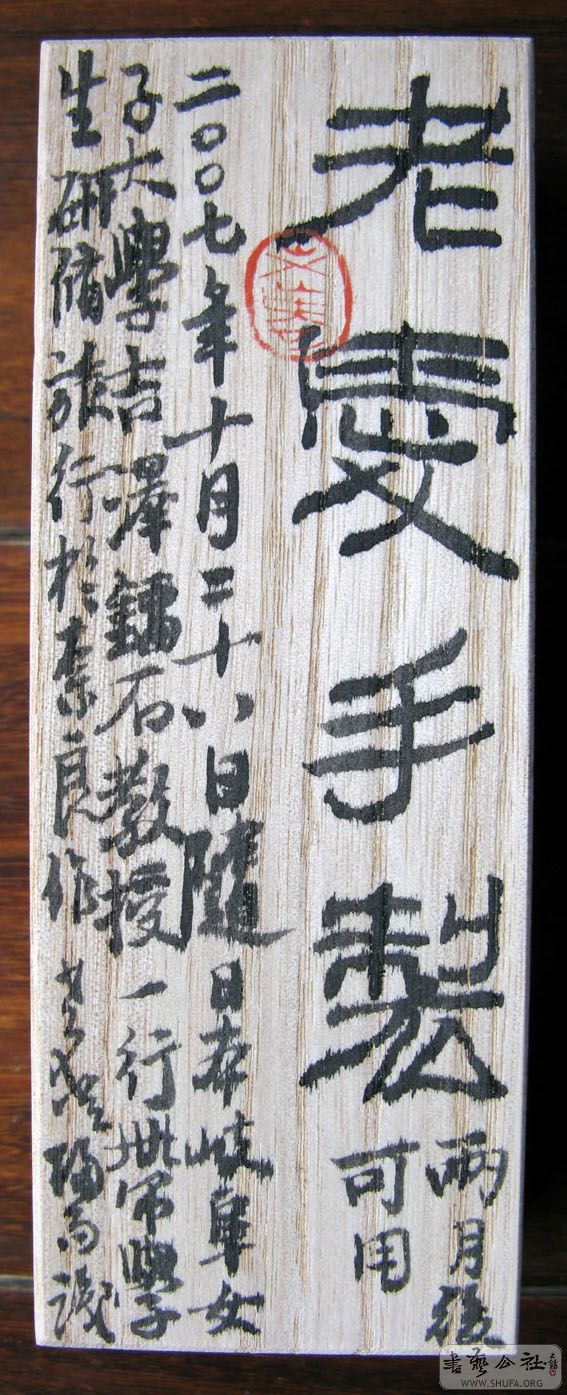 老愛手製
兩月後
可用
二〇〇七年十月二十八日隨日本岐阜女
子大學吉澤石教授一行學
生研脩旅行於奈良作識
書藝公社
WWW.SHUFA.ORG